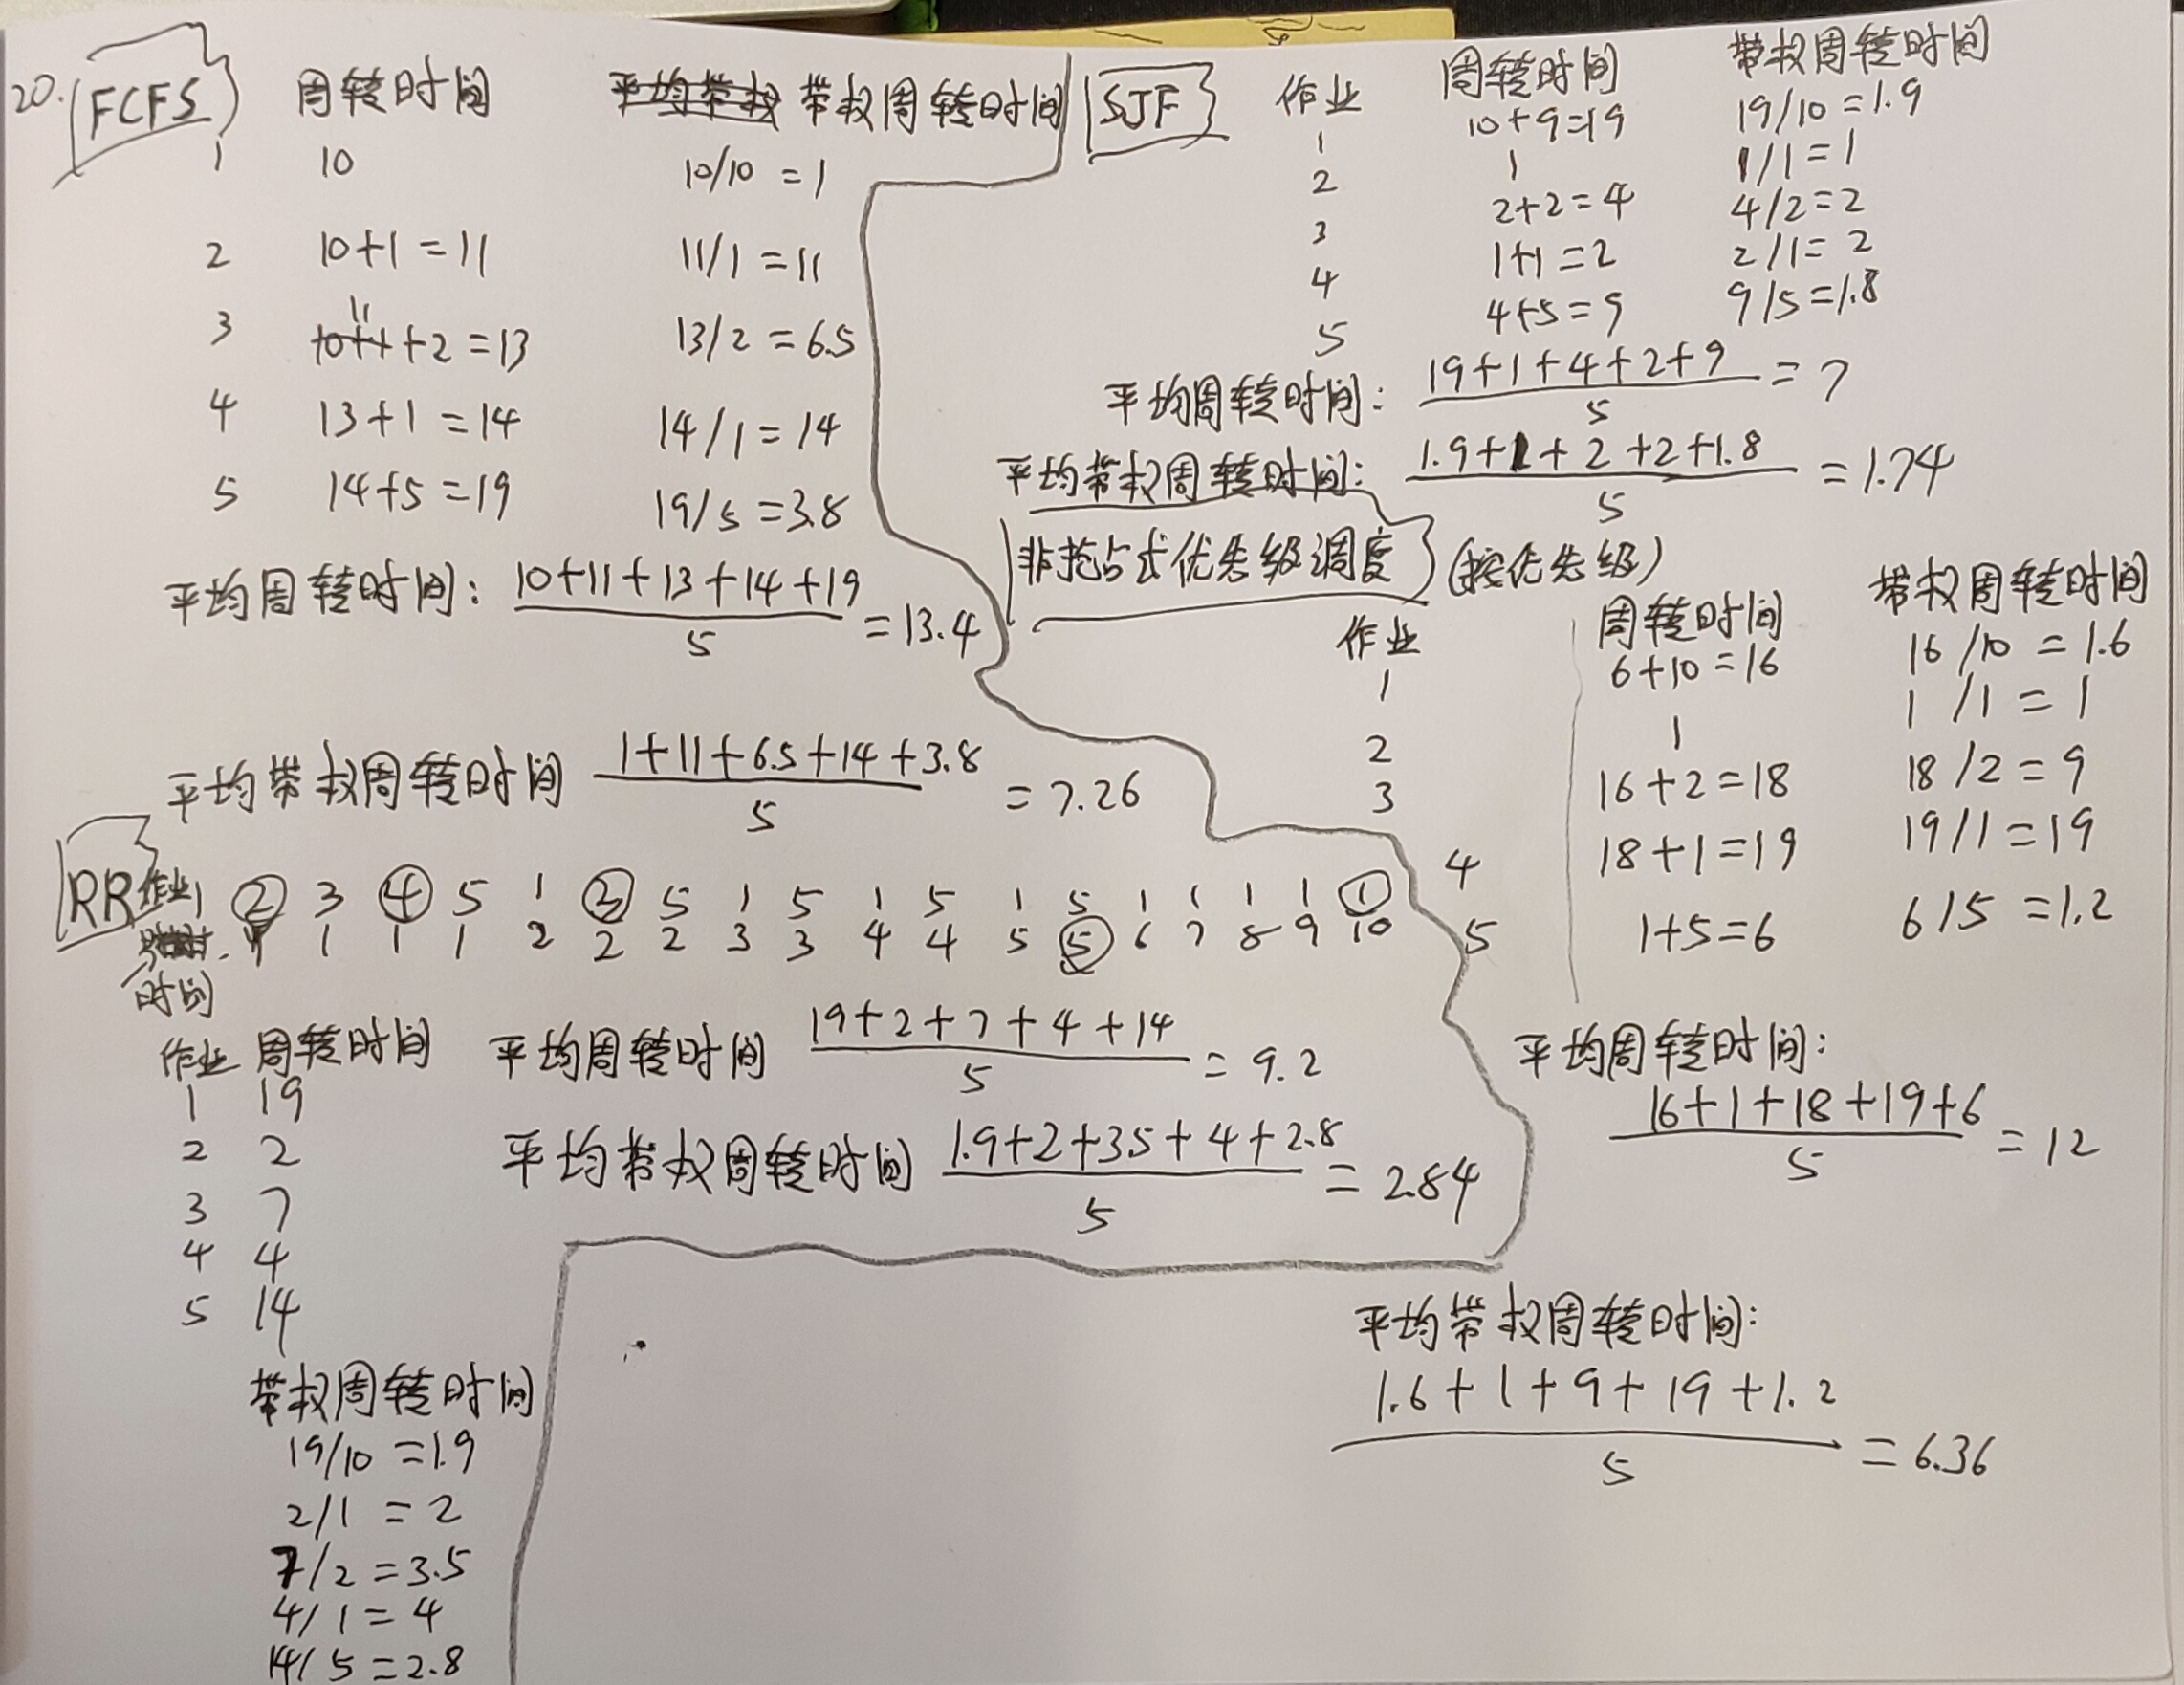 20. FCFS 周转时间 平均带权 带权周转时间
1 10 10/10 = 1
2 10+1 = 11 11/1 = 11
3 10+1 11 +2 = 13 13/2 = 6.5
4 13+1 = 14 14/1 = 14
5 14+5 = 19 19/5 = 3.8
平均周转时间: (10+11+13+14+19)/5 = 13.4
平均带权周转时间 (1+11+6.5+14+3.8)/5 = 7.26
SJF 作业 周转时间 带权周转时间
1 10+9=19 19/10 = 1.9
2 1 1/1 = 1
3 2+2 = 4 4/2 = 2
4 1+1 = 2 2/1 = 2
5 4+5 = 9 9/5 = 1.8
平均周转时间: (19+1+4+2+9)/5 = 7
平均带权周转时间: (1.9+1+2+2+1.8)/5 = 1.74
非抢占式优先级调度 (按优先级)
作业 周转时间 带权周转时间
1 6+10 = 16 16/10 = 1.6
2 1 1/1 = 1
3 16+2 = 18 18/2 = 9
4 18+1 = 19 19/1 = 19
5 1+5 = 6 6/5 = 1.2
平均周转时间:
(16+1+18+19+6)/5 = 12
平均带权周转时间:
(1.6+1+9+19+1.2)/5 = 6.36
RR
作业 1 2 3 4 5 1 3 5 1 5 1 5 1 5 1 1 1 1 1
时间 1 1 1 1 2 2 2 3 3 4 4 5 5 6 7 8 9 10
作业 周转时间
1 19
2 2
3 7
4 4
5 14
平均周转时间 (19+2+7+4+14)/5 = 9.2
平均带权周转时间 (1.9+2+3.5+4+2.8)/5 = 2.84
带权周转时间
19/10 = 1.9
2/1 = 2
7/2 = 3.5
4/1 = 4
14/5 = 2.8